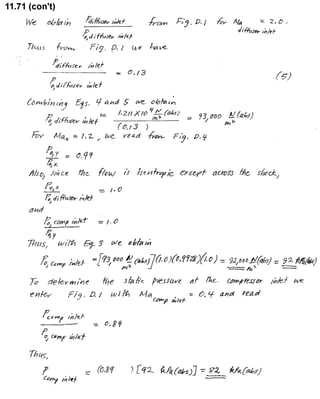 11.71 (con't)
We obtain P diffuser inlet / P0, diffuser inlet from Fig. D.1 for Ma diffuser inlet = 2.0.
Thus from Fig. D.1 we have
P diffuser inlet / P0, diffuser inlet = 0.13 (5)
Combining Eqs. 4 and 5 we obtain
P0, diffuser inlet = 1.211 X 10^4 N/m² (abs) / (0.13) = 93,000 N/m² (abs)
For Max = 1.2, we read from Fig. D.4
P0,y / P0,x = 0.99
Also, since the flow is isentropic except across the shock,
P0,x / P0, diffuser inlet = 1.0
and
P0, comp inlet / P0,y = 1.0
Thus, with Eq. 3 we obtain
P0, comp inlet = [93,000 N/m² (abs)](1.0)(0.9928)(1.0) = 92,000 N/m² (abs) = 92 kPa(abs)
To determine the static pressure at the compressor inlet we
enter Fig. D.1 with Ma comp inlet = 0.4 and read
P comp inlet / P0, comp inlet = 0.89
Thus,
P comp inlet = (0.89 ) [92 kPa(abs)] = 82 kPa(abs)